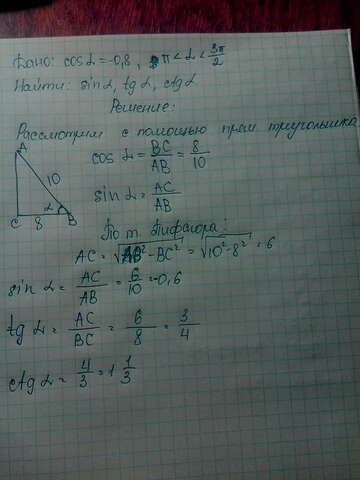 Дано: cos α = -0,8, π < α < 3π/2
Найти: sin α, tg α, ctg α
Решение:
Рассмотрим с помощью прям треугольника
A
10
α
C 8 B
cos α = BC/AB = 8/10
sin α = AC/AB
По т. Пифагора:
AC = √AB² - BC² = √10² - 8² = 6
sin α = AC/AB = 6/10 = -0,6
tg α = AC/BC = 6/8 = 3/4
ctg α = 4/3 = 1 1/3